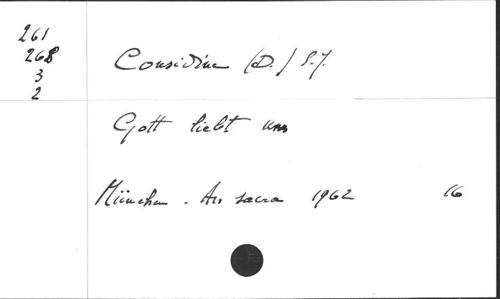 261
268
3
2
Considine (D.) S.J.
Gott liebt uns
München. Ars sacra 1962 16